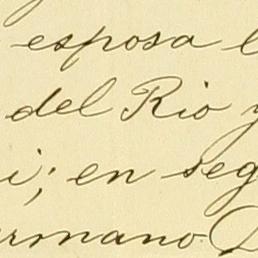 esposa l
del Rio y
i; en seg
ermano D